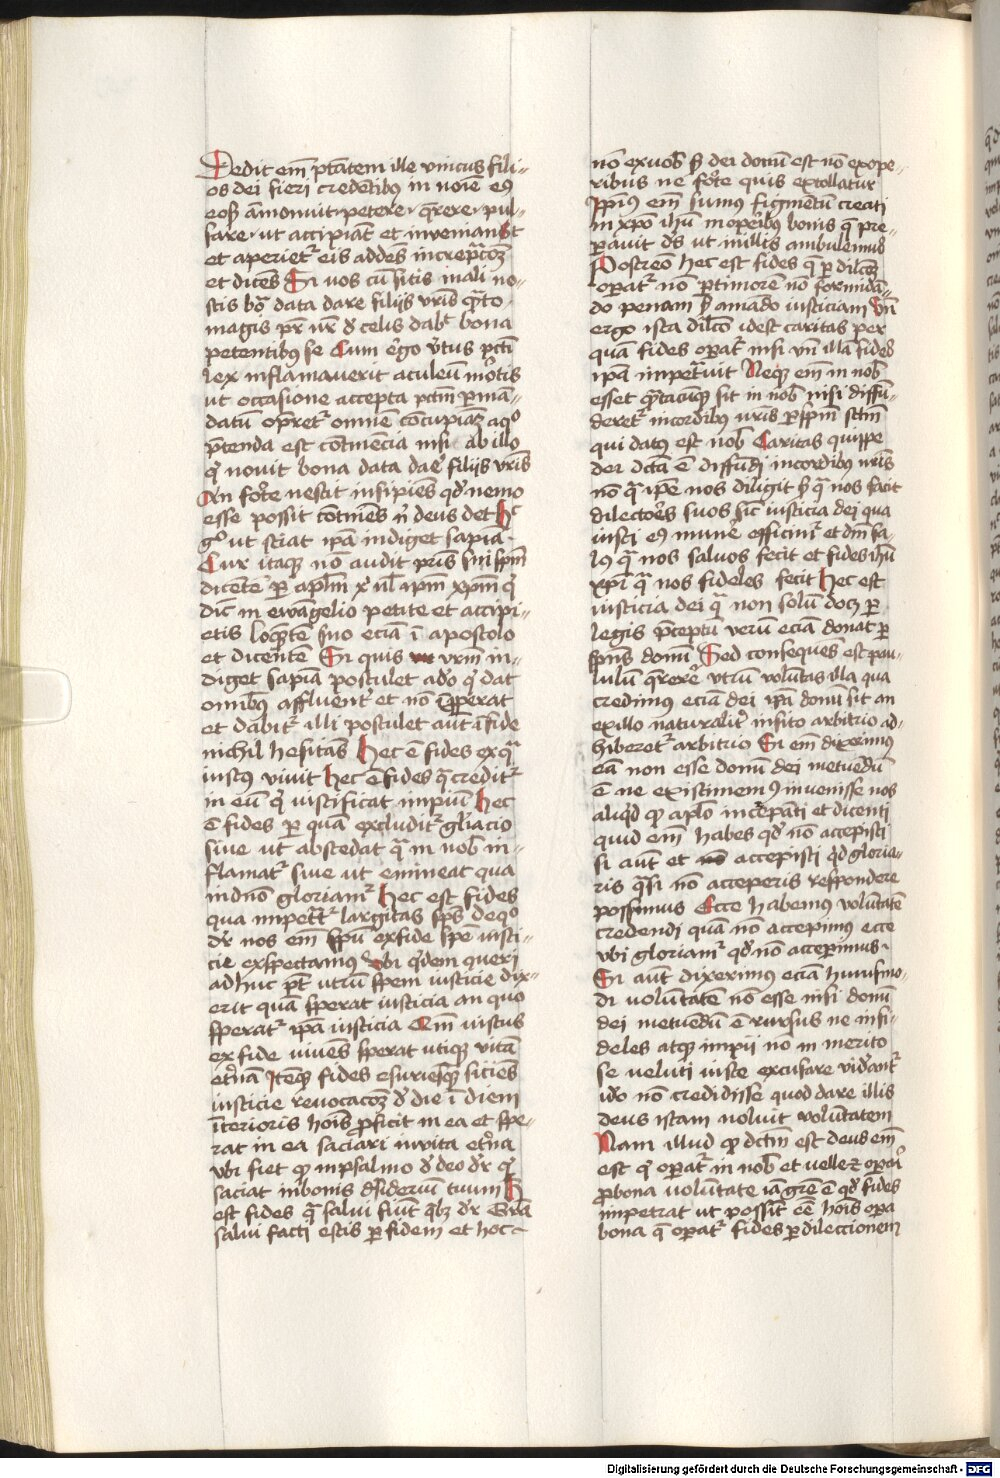 Dedit em̄ ptātem ille vnicus fili-
os dei fieri credētibꝰ in noīe eiꝰ
eosq̄ āmonuit petere q̄rere pul-
sare ut accipiāt et inveniant
et aperiet᷑ eis addēs increpac̄oꝫ
et dicēs Si vos cū sitis mali no-
stis boā data dare filijs vr̄is q̄to
magis pr̄ vr̄ d̄ celis dabit bona
petentibꝰ se Cum ergo v̄tus pctī
lex inflamauerit aculeū mortis
ut occasione accepta pctm̄ p̲ man-
datū opret᷑ omnē cōcupiaꝫ a qͦ
p̄tenda est cōtinēcia nisi ab illo
q̇ nouit bona data dare filijs vr̄is
An forte nescit insipiēs qd̓ nemo
esse possit cōtinēs n̄ deus det hͨ
gͦ ut sciat ip̄a indiget sapīa
Cur itaqꝫ nō audit pr̄is sui spm̄
dicētē p̲ apl̄m xp̄i ul̓ ip̄m xp̄m q̇
dic̄ in ewāgelio petite et accipi-
etis loq̄ntē suo eciā ī apostolo
et dicentē Si quis vrm̄ in-
diget sapīa postulet a dō q̇ dat
omībꝰ affluent᷑ et nō īp̲perat
et dabit᷑ illi postulet aūt ī fide
nichil hesitās Hec ē fides ex q̄
iustꝰ viuit hec ē fides q̄ credit᷑
in eū q̇ iustificat impiū hec
ē fides p̲ quā excludit᷑ gl̄iacio
siue ut abscedat q̄ in nob̄ in-
flamat᷑ siue ut emineat qua
in dn̄o gloriam᷑ hec est fides
qua impetrat᷑ largitas spūs de qͦ
dr̄ nos em̄ spū ex fide spē iusti-
cie exspectamus vbi q̇dem queri
adhuc pt̄ utrū spem iusticie dix-
erit quā sperat iusticia an quo
sperat᷑ ip̄a iusticia Qm̄ iustus
ex fide viuēs sperat utiqꝫ vitā
et̓nā Itēqꝫ fides esuriēsqꝫ siciēs
iusticie reuocac̄oꝫ d̄ die ī diem
īterioris hoīs p̲ficit in ea et spe-
rat in ea saciari in vita et̓na
vbi fiet qd̓ in psalmo d̄ deo dr̄ q̇
saciat in bonis desideriū tuum h̄
est fides q̄ salui fiūt qꝫ dr̄ Grā
salui facti estis p̲ fidem et hoc
nō ex uob̄ sꝫ dei donū est nō ex ope-
ribus ne forte quis extollatur
Ip̄ius em̄ sumus figmentū creati
in xp̄o ihū in operibꝰ bonis q̄ pre-
p̲auit ds̄ ut in illis ambulemus
Postreō hec est fides q̄ p̲ dilc̄oꝫ
operat᷑ nō p̲ timorē nō formidā-
do penam sꝫ amādo iusticiam Vn̄
ergo ista dilc̄o idest caritas per
quā fides operat᷑ nisi vn̄ illā fides
ip̄a impetrauit Neqꝫ em̄ in nob̄
esset q̄ntacūqꝫ sit in nob̄ nisi diffu-
deret᷑ in cordibus nr̄is p̲ spm̄ sctm̄
qui datus est nob̄ Caritas quippe
dei dcta ē diffundi in cordibꝰ nr̄is
nō q̄ ip̄e nos diligit sꝫ q̄ nos facit
dilectores suos sic̄ iusticia dei qua
iusti eiꝰ munē efficim᷑ et dn̄i sa-
lꝰ q̄ nos saluos fecit et fides ihū
xp̄i q̄ nos fideles fecit Hec est
iusticia dei q̄ non solū docꝫ p̲
legis p̄ceptū verū eciā donat p̲
spūs donū Sed consequēs est pau-
lulū q̄rere utrū volūtas illa qua
credimus eciā dei ip̄a donū sit an
ex illo naturalit᷑ insito arbitrio ad-
hiberet᷑ arbitrio Si em̄ dixerimꝰ
eā non esse donū dei metuēdū
ē ne existimemꝰ inuenisse nos
aliq̇d qd̓ apl̄o increpāti et dicenti
quid em̄ habes qd̓ nō accepisti
si aūt et accepisti q̇d gloria-
ris q̄si nō acceperis respondere
possimus Ecce habemꝰ volūtatē
credendi quā nō accepimꝰ ecce
vbi gloriam᷑ qd̓ nō acceperimus
Si aūt dixerimꝰ eciā huiusmo-
di volūtatē nō esse nisi donū
dei metuēdū ē rursus ne infi-
deles atqꝫ impii nō in merito
se veluti iuste excusare videant᷑
ido̓ nō credidisse quod dare illis
deus istam noluit volūtatem
Nam illud qd̓ dctm̄ est deus em̄
est q̇ operat᷑ in nob̄ et velle ⁊ operari
p̲ bona volūtate iā grē ē qd̓ fides
impetrat ut possīt eē hoīs opa
bona q̄ operat᷑ fides p̲ dileccionem
Digitalisierung gefördert durch die Deutsche Forschungsgemeinschaft - DFG